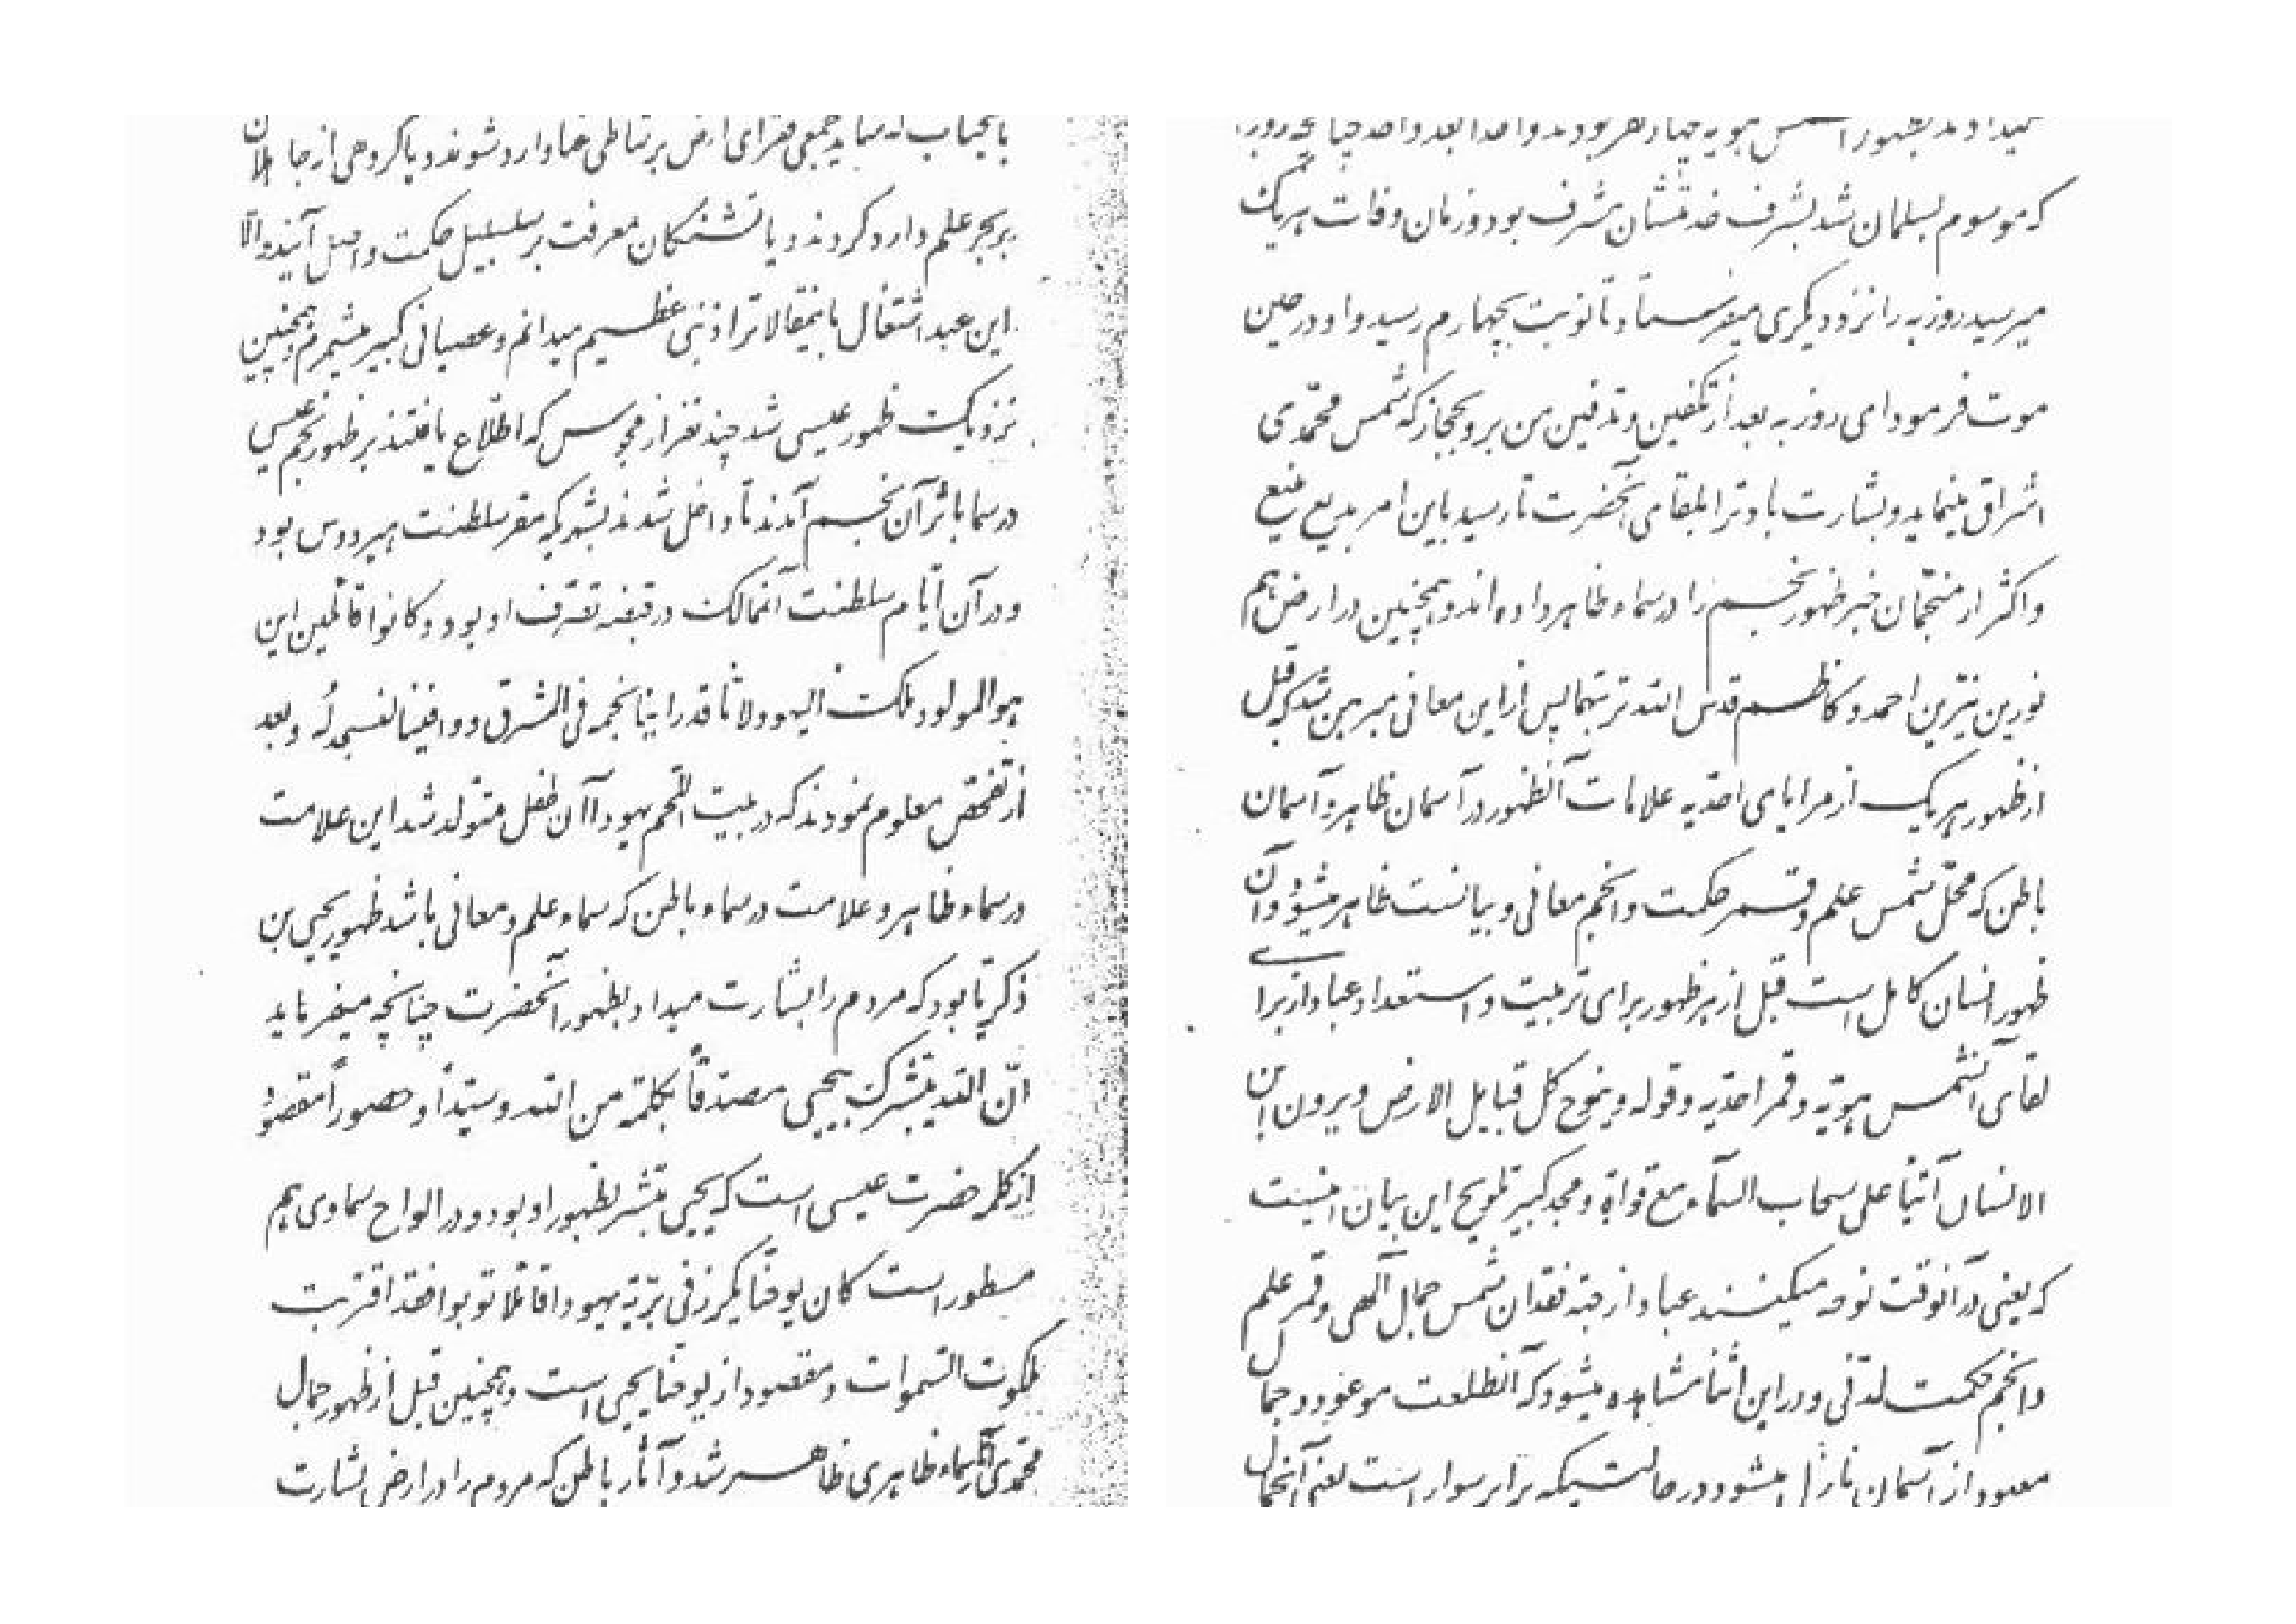 باینجناب که شاید جمعی فقرای ارض بر شاطی غنا وارد شوند و یا گروهی از جاهلان
ببحر علم وارد گردند و یا تشنگان معرفت بر سلسبیل حکمت واصل آیند والا
این عبد اشتغال باینمقالاترا ذنبی عظیم میدانم و عصیانی کبیر میشمرم و همچنین
نزدیک ظهور عیسی شد چند نفر از مجوس که اطلاع یافتند بر ظهور نجم عیسی
در سما باثر آن نجم آمدند تا داخل شدند بشهریکه مقر سلطنت هیرودس بود
و در آن ایام سلطنت آنممالک در قبضه تصرف او بود و کانوا قائلین این
هو المولود ملک الیهود لانا قد راینا نجمه فی المشرق و وافینا لنسجد له و بعد
از تفحص معلوم نمودند که در بیت اللحم یهودا آن طفل متولد شد این علامت
در سماء ظاهر و علامت در سماء باطن که سماء علم و معانی باشد ظهور یحیی بن
زکریا بود که مردم را بشارت میداد بظهور آنحضرت چنانچه میفرماید
انّ الله یبشرک بیحیی مصدقاً بکلمة من الله و سیّداً و حصوراً مقصود
از کلمه حضرت عیسی است که یحیی مبشر بظهور او بود و در الواح سماوی هم
مسطور است کان یوحنا یکرز فی بریّة یهودا قائلا توبوا فقد اقتربت
ملکوت السموات و مقصود از یوحنا یحیی است و همچنین قبل از ظهور جمال
محمدی آثار سماء ظاهری ظاهر شد و آثار باطن که مردم را در ارض بشارت
میدادند بظهور آن شمس هویه چهار نفر بودند واحدا بعد واحد چنانچه روزبه
که موسوم بسلمان شد بشرف خدمتشان مشرف بود و زمان وفات هر یک
میرسید روزبه را نزد دیگری میفرستاد تا نوبت بچهارم رسید و او در حین
موت فرمود ای روزبه بعد از تکفین و تدفین من برو بحجاز که شمس محمّدی
اشراق مینماید و بشارت باد ترا بلقای آنحضرت تا رسید باین امر بدیع منیع
و اکثر از منجمان خبر ظهور نجم را در سماء ظاهر داده اند و همچنین در ارض هم
نورین نیّرین احمد و کاظم قدس الله تربتهما پس از این معانی مبرهن شد که قبل
از ظهور هر یک از مرایای احدیه علامات آنظهور در آسمان ظاهر و آسمان
باطن که محلّ شمس علم و قمر حکمت و انجم معانی و بیانست ظاهر میشود و آن
ظهور انسان کامل است قبل از هر ظهور برای تربیت و استعداد عباد از برای
لقای آنشمس هویّه و قمر احدیه و قوله و ینوح کل قبایل الارض و یرون ابن
الانسان آتیا علی سحاب السماء مع قواة و مجد کبیر تلویح این بیان اینست
که یعنی در آنوقت نوحه میکنند عباد از جهة فقدان شمس جمال آلهی و قمر علم
و انجم حکمت لدنّی و در این اثنا مشاهده میشود که آنطلعت موعود و جمال
معبود از آسمان نازل میشود در حالتیکه برابر سوار است یعنی آنجمال